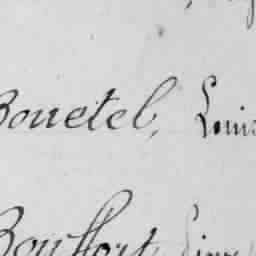 Bouetel, Louis
Bouffort